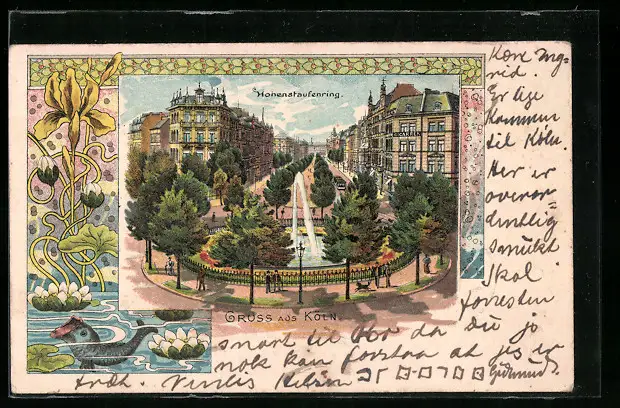 Hohenstaufenring.
GRUSS AUS KÖLN.
Kære Ing-
rid.
Er lige
kommen
til Köln.
Her er
overor-
dentlig
smukt
Skal
forresten
snart til Kbr da du jo
nok kan forstaa at jeg er
træt. Venlig Hilsen
Gudmund